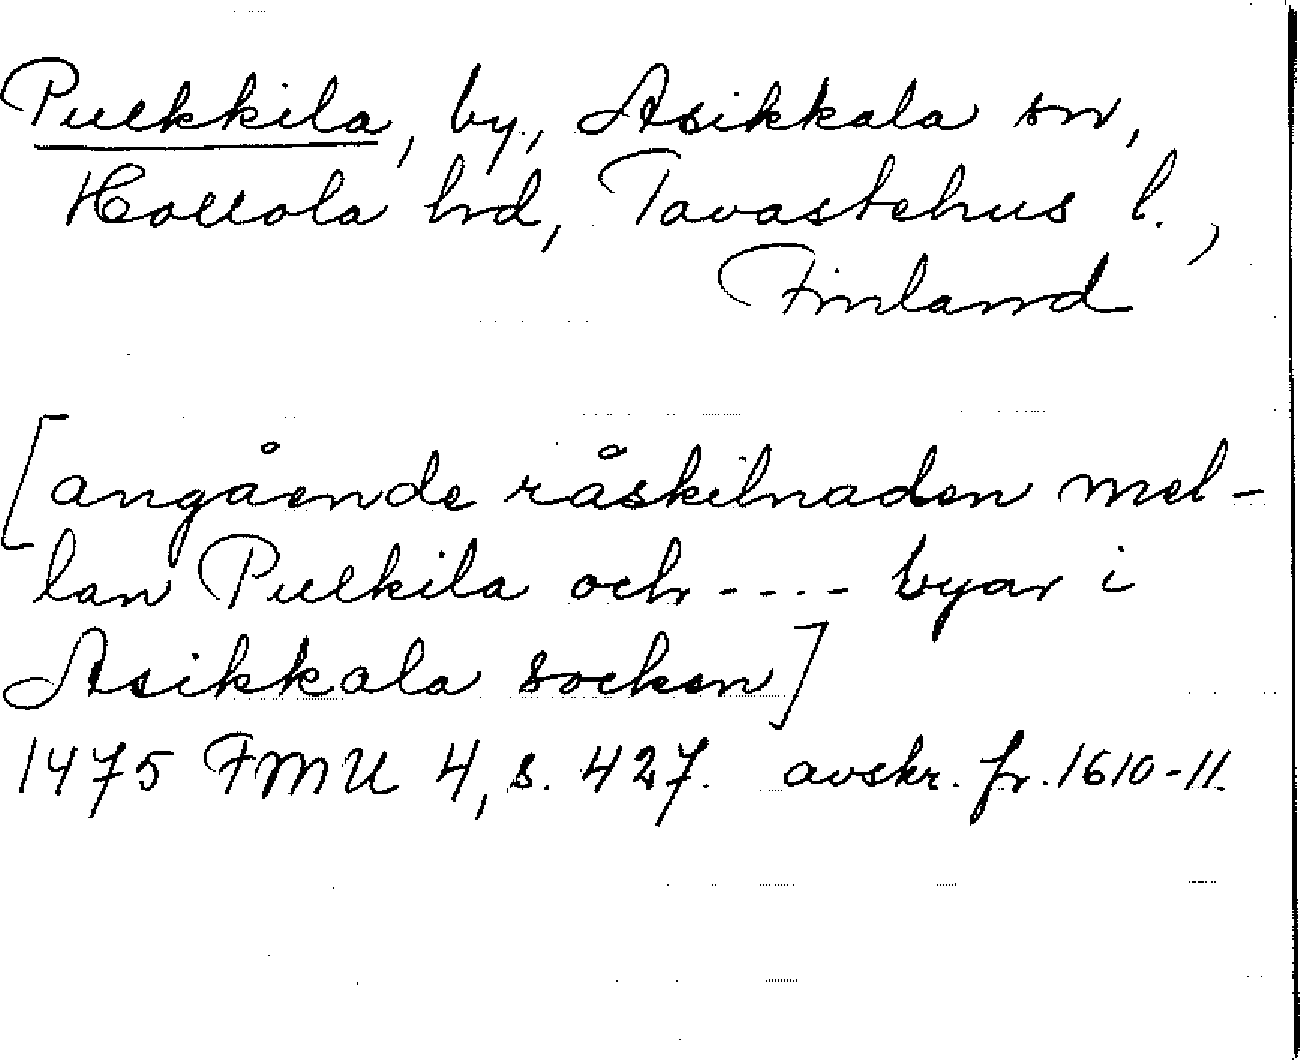 Pulkkila, by, Asikkala sn,
Hollola hd, Tavastehus l.,
Finland
[angående råskilnaden mel-
lan Pulkila och ---- byar i
Asikkala socken]
1475 FMU 4, s. 427. avskr. fr. 1610-11.